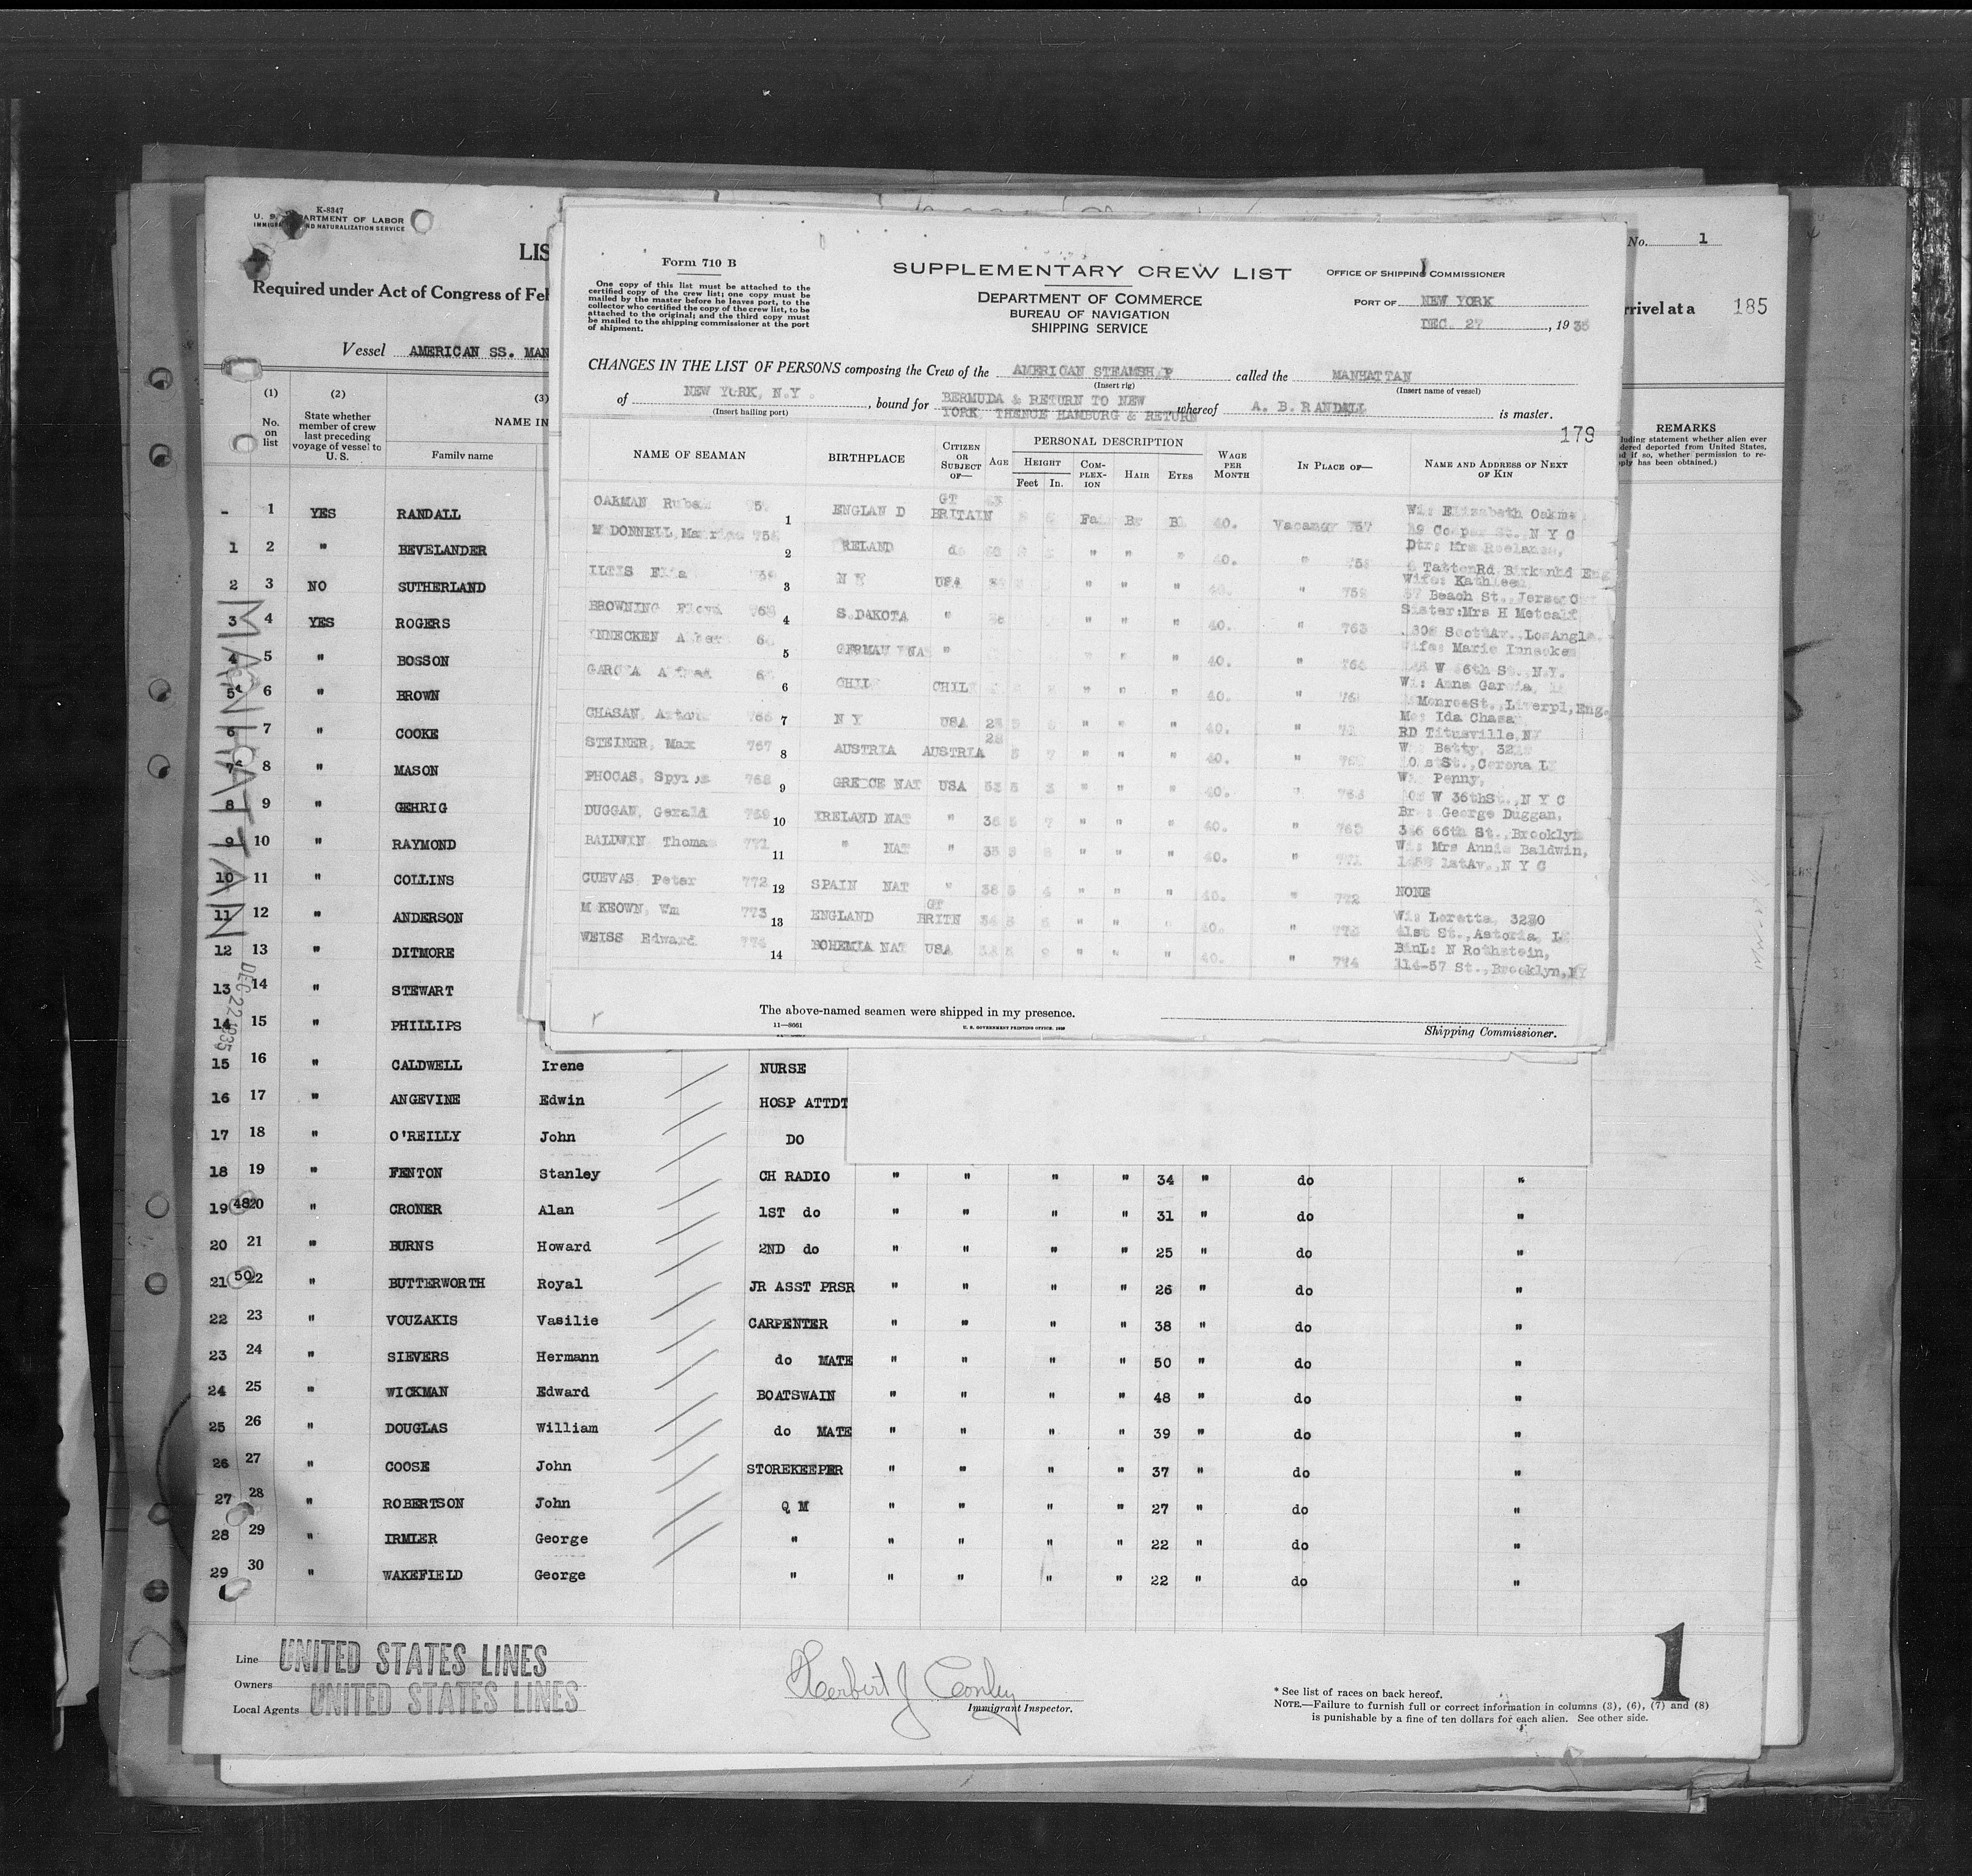 K-8347
U. S. DEPARTMENT OF LABOR
IMMIGRATION AND NATURALIZATION SERVICE
LIS
Required under Act of Congress of Feb
Vessel AMERICAN SS. MAN
No. 1
rrival at a 185
(1) (2) (3)
No. on list
State whether member of crew last preceding voyage of vessel to U. S.
NAME IN
Family name
REMARKS
luding statement whether alien ever
dered deported from United States,
d if so, whether permission to re-
ply has been obtained.)
Form 710 B
One copy of this list must be attached to the
certified copy of the crew list; one copy must be
mailed by the master before he leaves port, to the
collector who certified the copy of the crew list, to be
attached to the original; and the third copy must
be mailed to the shipping commissioner at the port
of shipment.
SUPPLEMENTARY CREW LIST
DEPARTMENT OF COMMERCE
BUREAU OF NAVIGATION
SHIPPING SERVICE
OFFICE OF SHIPPING COMMISSIONER
PORT OF NEW YORK
DEC. 27, 1935
CHANGES IN THE LIST OF PERSONS composing the Crew of the AMERICAN STEAMSHIP called the MANHATTAN
(Insert rig) (Insert name of vessel)
of NEW YORK, N.Y., bound for BERMUDA & RETURN TO NEW
YORK, THENCE HAMBURG & RETURN whereof A. B. RANDALL is master.
(Insert hailing port)
179
NAME OF SEAMAN
BIRTHPLACE
CITIZEN OR SUBJECT OF—
AGE
PERSONAL DESCRIPTION
HEIGHT
Feet In.
COMPLEXION
HAIR
EYES
WAGE PER MONTH
IN PLACE OF—
NAME AND ADDRESS OF NEXT OF KIN
OAKMAN 1 ENGLAND GT BRITAIN Br 40. Vacancy 757 Wi: Elizabeth
Cooper St., N Y C
McDONNELL, 2 IRELAND do " " " 40. " Dtr: Mrs
Tatton Rd Birkenhd Eng
ILTIS 759 3 N Y USA " " " 40. " 759 Wife: Kathleen
Beach St.,
BROWNING 4 S.DAKOTA " " " " 40. " 763 Sister: Mrs H Metcalf
INNECKEN 5 GERMANY NAT " " " 40. " Wife: Marie
W 66th St., N.Y.
GARCIA 6 CHILE CHILE " " " 40. " Wi: Anna Garcia,
Monroe St., Liverpl, Eng.
CHASAN, 766 7 N Y USA 23 5 " " " 40. " Mo: Ida
RD Titusville, NJ
STEINER, Max 767 8 AUSTRIA AUSTRIA 28 5 7 " " " 40. " Wi: Betty,
St., Corona LI
PHOCAS, Spyros 768 9 GREECE NAT USA 53 5 3 " " " 40. " Wi: Penny,
W 36th St., N Y C
DUGGAN, Gerald 769 10 IRELAND NAT " 36 5 7 " " " 40. " Br: George Duggan,
346 66th St., Brooklyn
BALDWIN Thomas 771 11 " NAT " 33 5 8 " " " 40. " 771 Wi: Mrs Annie Baldwin,
1st Av., N Y C
CUEVAS, Peter 772 12 SPAIN NAT " 38 5 4 " " " 40. " 772 NONE
McKEOWN, Wm 773 13 ENGLAND GT BRITN 34 5 " " 40. " 773 Wi: Loretta,
41st St., Astoria, LI
WEISS Edward 774 14 BOHEMIA NAT USA 5 9 " " " 40. " 774 BinL: N Rothstein,
114-57 St., Brooklyn, NY
The above-named seamen were shipped in my presence.
11—8661
U. S. GOVERNMENT PRINTING OFFICE
Shipping Commissioner.
MANHATTAN
DEC 22 1935
- 1 YES RANDALL
1 2 " BEVELANDER
2 3 NO SUTHERLAND
3 4 YES ROGERS
4 5 " BOSSON
5 6 " BROWN
6 7 " COOKE
7 8 " MASON
8 9 " GEHRIG
9 10 " RAYMOND
10 11 " COLLINS
11 12 " ANDERSON
12 13 " DITMORE
13 14 " STEWART
14 15 " PHILLIPS
15 16 " CALDWELL Irene NURSE
16 17 " ANGEVINE Edwin HOSP ATTDT
17 18 " O'REILLY John DO
18 19 " FENTON Stanley CH RADIO " " " " 34 " do "
19 48 20 " CRONER Alan 1ST do " " " " 31 " do "
20 21 " BURNS Howard 2ND do " " " " 25 " do "
21 50 22 " BUTTERWORTH Royal JR ASST PRSR " " " " 26 " do "
22 23 " VOUZAKIS Vasilie CARPENTER " " " " 38 " do "
23 24 " SIEVERS Hermann do MATE " " " " 50 " do "
24 25 " WICKMAN Edward BOATSWAIN " " " " 48 " do "
25 26 " DOUGLAS William do MATE " " " " 39 " do "
26 27 " COOSE John STOREKEEPER " " " " 37 " do "
27 28 " ROBERTSON John Q M " " " " 27 " do "
28 29 " IRMLER George " " " " " 22 " do "
29 30 " WAKEFIELD George " " " " " 22 " do "
Line UNITED STATES LINES
Owners
Local Agents UNITED STATES LINES
Herbert J Conley
Immigrant Inspector.
* See list of races on back hereof.
NOTE.—Failure to furnish full or correct information in columns (3), (6), (7) and (8)
is punishable by a fine of ten dollars for each alien. See other side.
1